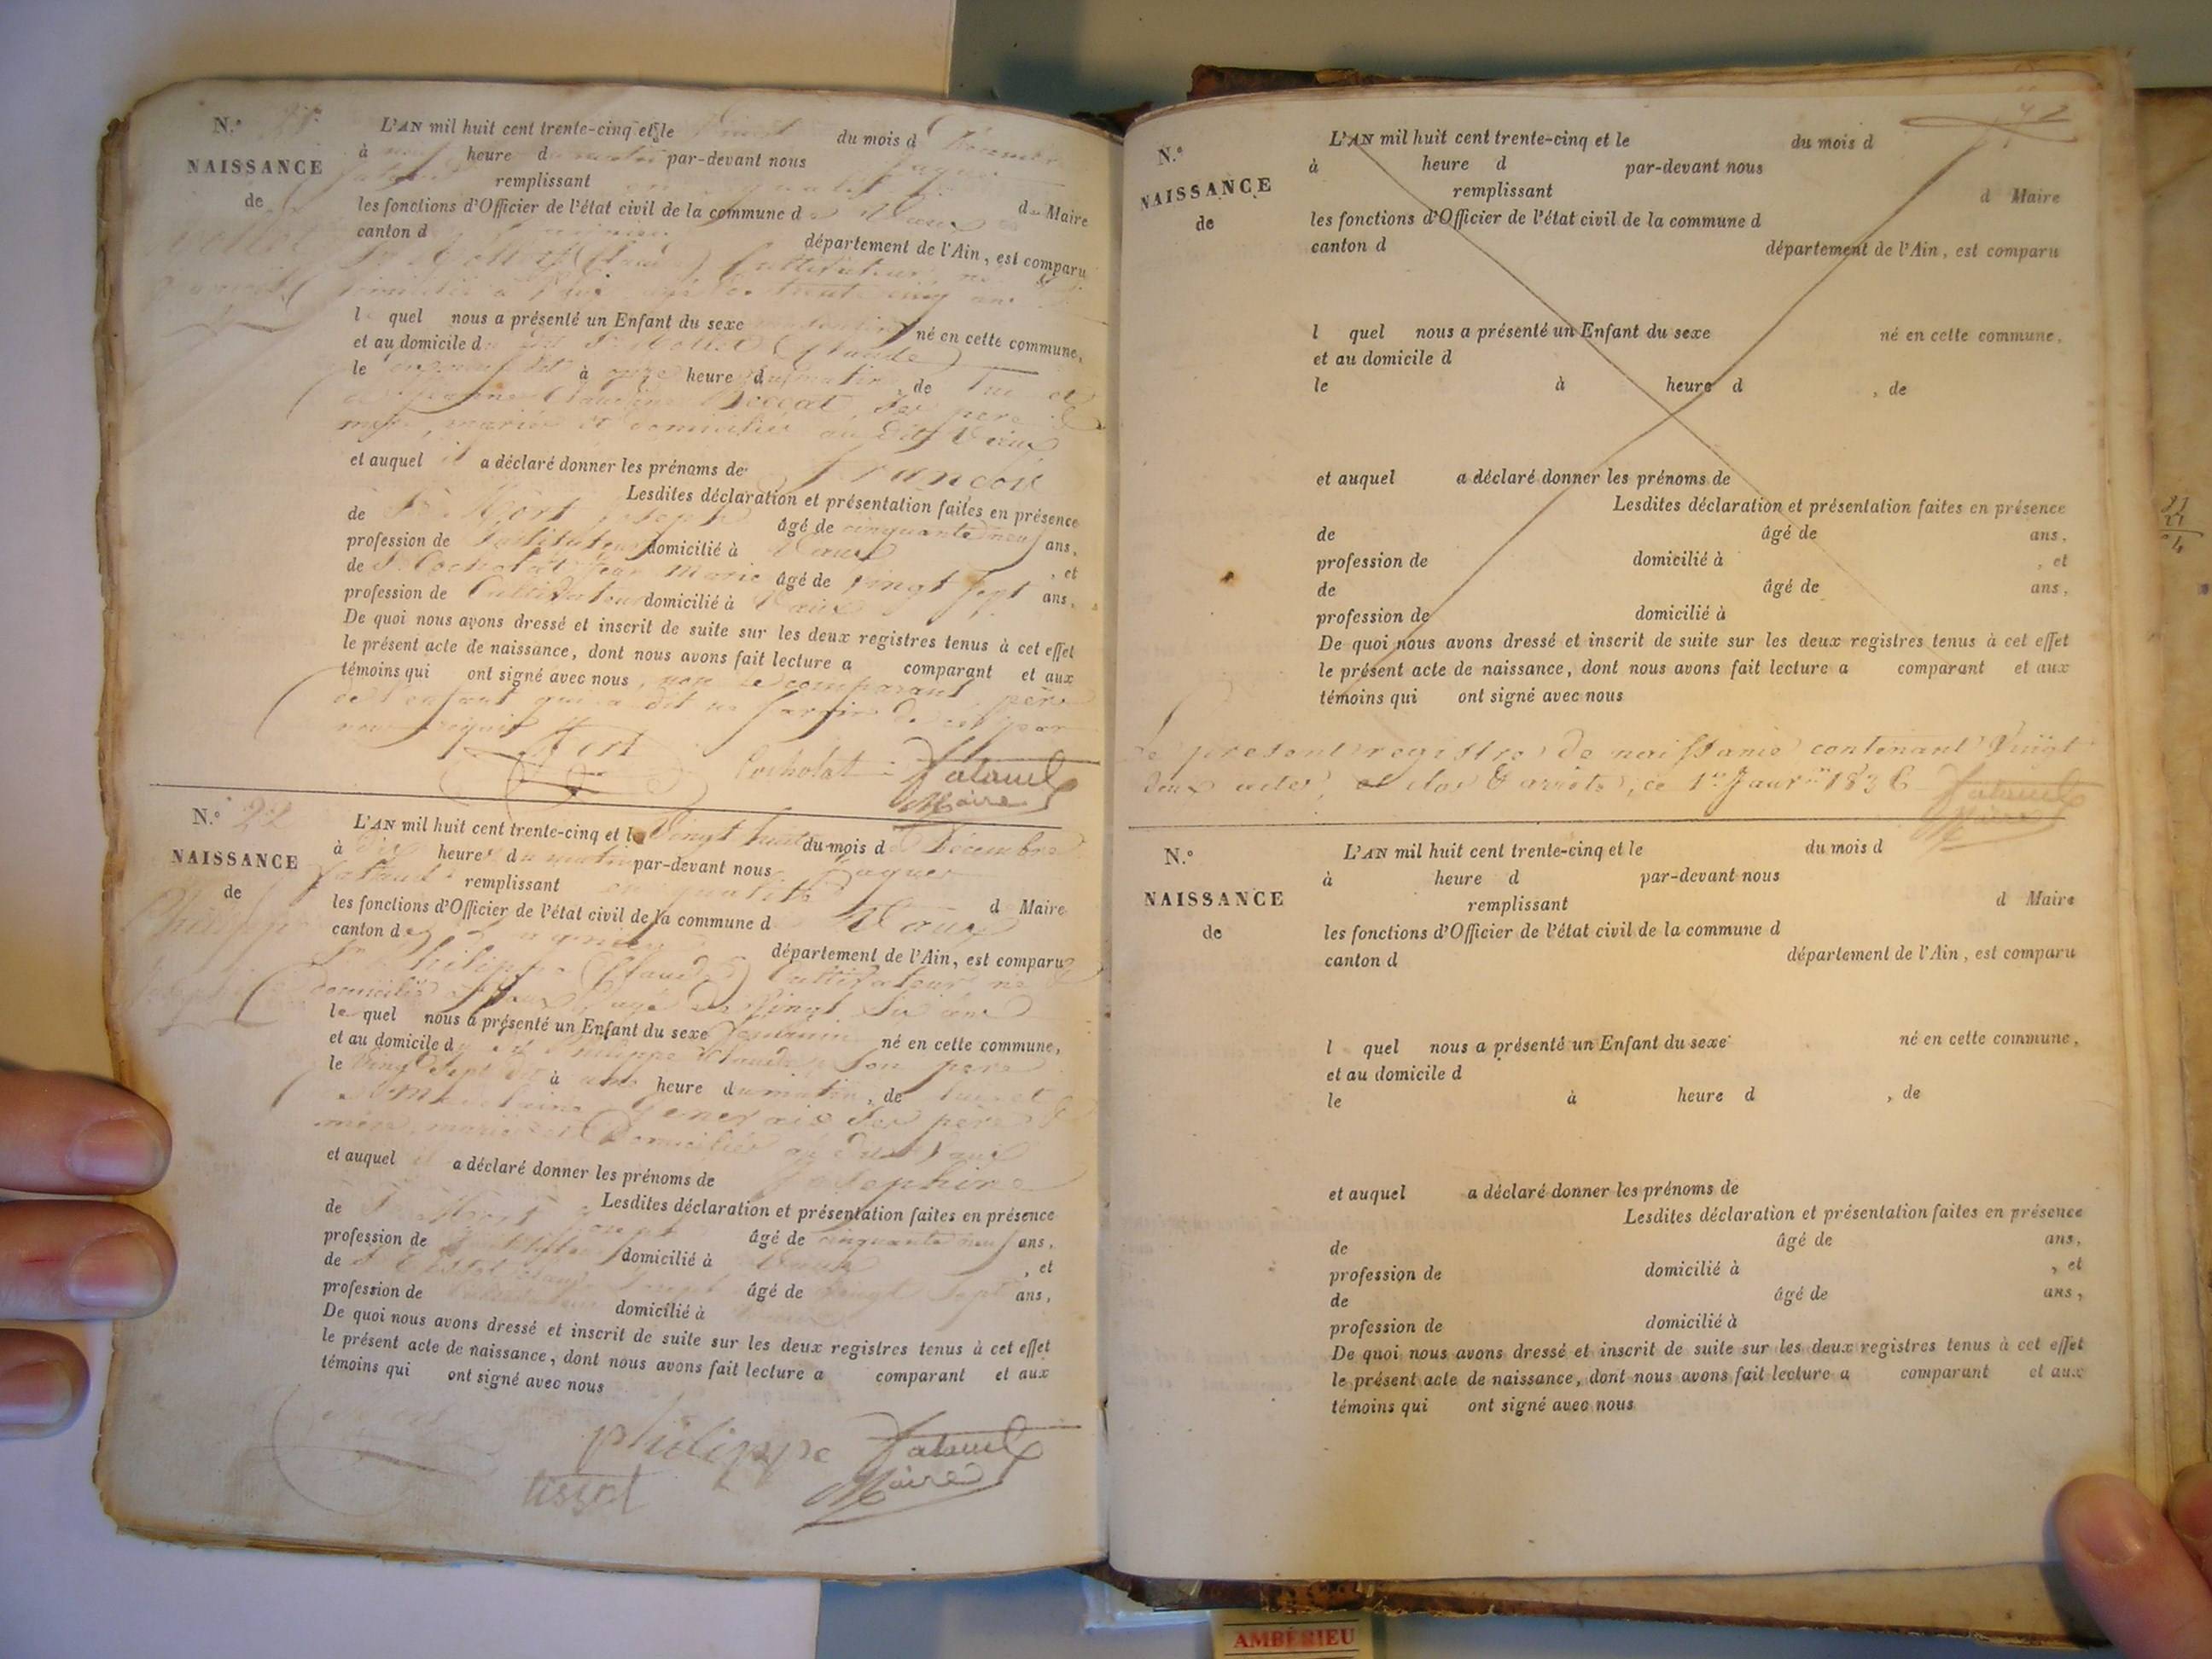 N.º
NAISSANCE
de
L'AN mil huit cent trente-cinq et le vingt du mois d
à heure d par-devant nous
remplissant en qualité d Maire
les fonctions d'Officier de l'état civil de la commune de Vaux
canton d
département de l'Ain, est comparu
(Claude) Cultivateur, né &
domicilié à Vaux âgé de trente cinq ans
l quel nous a présenté un Enfant du sexe masculin né en cette commune,
et au domicile d Claude
le dit à onze heure du matin, de lui et
Claudine Boccat, ses père &
mère, mariés et domiciliés au dit Vaux
et auquel il a déclaré donner les prénoms de François
Lesdites déclaration et présentation faites en présence
de Sr Mort joseph âgé de cinquante neuf ans,
profession de Instituteur domicilié à Vaux, et
de Sr Cocholat jean Marie âgé de vingt sept ans,
profession de Cultivateur domicilié à Vaux
De quoi nous avons dressé et inscrit de suite sur les deux registres tenus à cet effet
le présent acte de naissance, dont nous avons fait lecture a comparant et aux
témoins qui ont signé avec nous, non le comparant père
de l'enfant qui a dit ne savoir de ce par
nous requis
Mort Cocholat
Maire
N.º 22
NAISSANCE
de
Philippe
L'AN mil huit cent trente-cinq et le vingt huit du mois de Décembre
à dix heures du matin par-devant nous
remplissant en qualité d Maire
les fonctions d'Officier de l'état civil de la commune d Vaux
canton de Lagnieu
département de l'Ain, est comparu
Sr Philippe (Claude) Cultivateur né &
domicilié à Vaux âgé de vingt six ans
le quel nous a présenté un Enfant du sexe féminin né en cette commune,
et au domicile du dit Philippe Claude, son père
le vingt sept dit à heure du matin, de lui et
ses père &
mère, mariés et domiciliés au dit Vaux
et auquel il a déclaré donner les prénoms de Josephine
Lesdites déclaration et présentation faites en présence
de Sr Mort joseph âgé de cinquante neuf ans,
profession de Instituteur domicilié à Vaux, et
de Sr âgé de vingt sept ans,
profession de domicilié à
De quoi nous avons dressé et inscrit de suite sur les deux registres tenus à cet effet
le présent acte de naissance, dont nous avons fait lecture a comparant et aux
témoins qui ont signé avec nous
philippe
tissot Maire
42
N.º
NAISSANCE
de
L'AN mil huit cent trente-cinq et le du mois d
à heure d par-devant nous
remplissant d Maire
les fonctions d'Officier de l'état civil de la commune d
canton d département de l'Ain, est comparu
l quel nous a présenté un Enfant du sexe né en cette commune,
et au domicile d
le à heure d , de
et auquel a déclaré donner les prénoms de
Lesdites déclaration et présentation faites en présence
de âgé de ans,
profession de domicilié à , et
de âgé de ans,
profession de domicilié à
De quoi nous avons dressé et inscrit de suite sur les deux registres tenus à cet effet
le présent acte de naissance, dont nous avons fait lecture a comparant et aux
témoins qui ont signé avec nous
Le présent registre de naissance contenant vingt
deux actes, et clos & arrêté, ce 1er Janvier 1836
Maire
N.º
NAISSANCE
de
L'AN mil huit cent trente-cinq et le du mois d
à heure d par-devant nous
remplissant d Maire
les fonctions d'Officier de l'état civil de la commune d
canton d département de l'Ain, est comparu
l quel nous a présenté un Enfant du sexe né en cette commune,
et au domicile d
le à heure d , de
et auquel a déclaré donner les prénoms de
Lesdites déclaration et présentation faites en présence
de âgé de ans,
profession de domicilié à , et
de âgé de ans,
profession de domicilié à
De quoi nous avons dressé et inscrit de suite sur les deux registres tenus à cet effet
le présent acte de naissance, dont nous avons fait lecture a comparant et aux
témoins qui ont signé avec nous
AMBÉRIEU